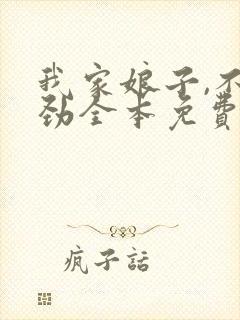 我家娘子,不
劲全本免費
疯子話